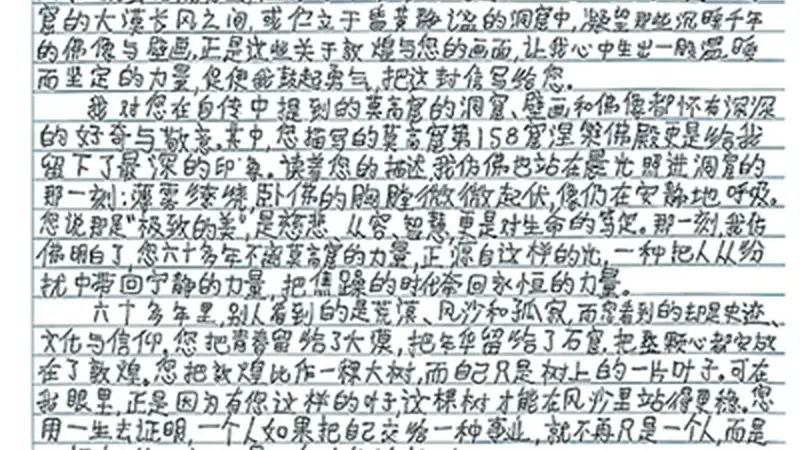 窟的大漠长风之间,或伫立于昏黄静谧的洞窟中,凝望那些沉睡千年
的佛像与壁画,正是这些关于敦煌与您的画面,让我心中生出一股温暖
而坚定的力量,促使我鼓起勇气,把这封信写给您。
我对您在自传中提到的莫高窟的洞窟、壁画和佛像都怀有深深
的好奇与敬意。其中,您描写的莫高窟第158窟涅槃佛殿更是给我
留下了最深的印象。读着您的描述,我仿佛也站在晨光照进洞窟的
那一刻:薄雾缭绕,卧佛的胸膛微微起伏,像仍在安静地呼吸。
您说那是“极致的美”,是慈悲、从容、智慧,更是对生命的笃定。那一刻,我仿
佛明白了,您六十多年不离莫高窟的力量,正源自这样的光,一种把人从纷
扰中带回宁静的力量,把焦躁的时代牵回永恒的力量。
六十多年里,别人看到的是荒漠、风沙和孤寂,而您看到的却是史迹、
文化与信仰。您把青春留给了大漠,把年华留给了石窟,把整颗心都安放
在了敦煌。您把敦煌比作一棵大树,而自己只是树上的一片叶子。可在
我眼里,正是因为有您这样的叶子,这棵树才能在风沙里站得更稳。您
用一生去证明,一个人如果把自己交给一种事业,就不再只是一个人,而是